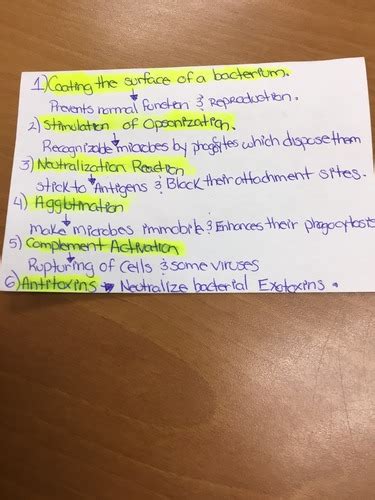 1) Coating the surface of a bacterium.
Prevents normal function & Reproduction.
2) Stimulation of Opsonization.
Recognizable microbes by phagsites which dispose them
3) Neutralization Reaction
stick to Antigens & Block their attachment sites.
4) Agglutination
make microbes immobile & Enhances their phagocytosis
5) Complement Activation
Rupturing of cells & some viruses
6) Antitoxins → Neutralize bacterial Exotoxins.